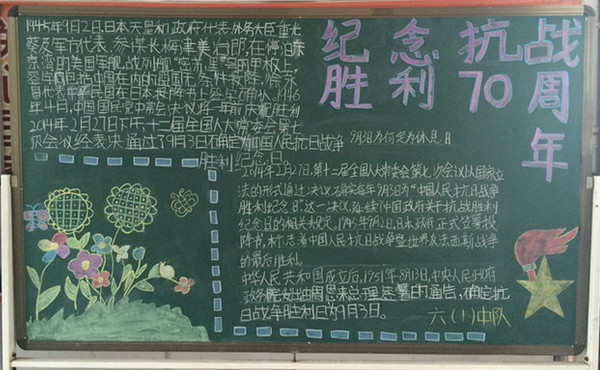 纪念抗战
胜利70周年
1945年9月2日,日本天皇和政府代表、外务大臣重光
葵及军方代表、参谋长梅津美治郎,在停泊东
京湾的美国军舰战列舰"密苏里"号的甲板上,
签字
包括中国在内的盟国
代表
在日本投降书上签字确认,1946
年4月,中国国民党中常会决议
庆祝胜利
2014年2月27日下午,十二届全国人大常委会第七
次会议经表决通过了9月3日
中国人民抗日战争
胜利纪念日。
9月3日为何定为休息日
2014年2月27日,第十二届全国人大常委会第七次会议以国家立
法的形式通过决议,确定每年9月3日为"中国人民抗日战争
胜利纪念日"。这一决议,延续了中国政府关于抗战胜利
纪念日的相关规定,1945年9月2日,日本政府正式签署投
降书,标志着中国人民抗日战争暨世界反法西斯战争
的最后胜利。
中华人民共和国成立后,1951年8月13日,中央人民政府
政务院发出由周恩来总理签署的通告,确定抗
日战争胜利日为9月3日。
六(1)中队